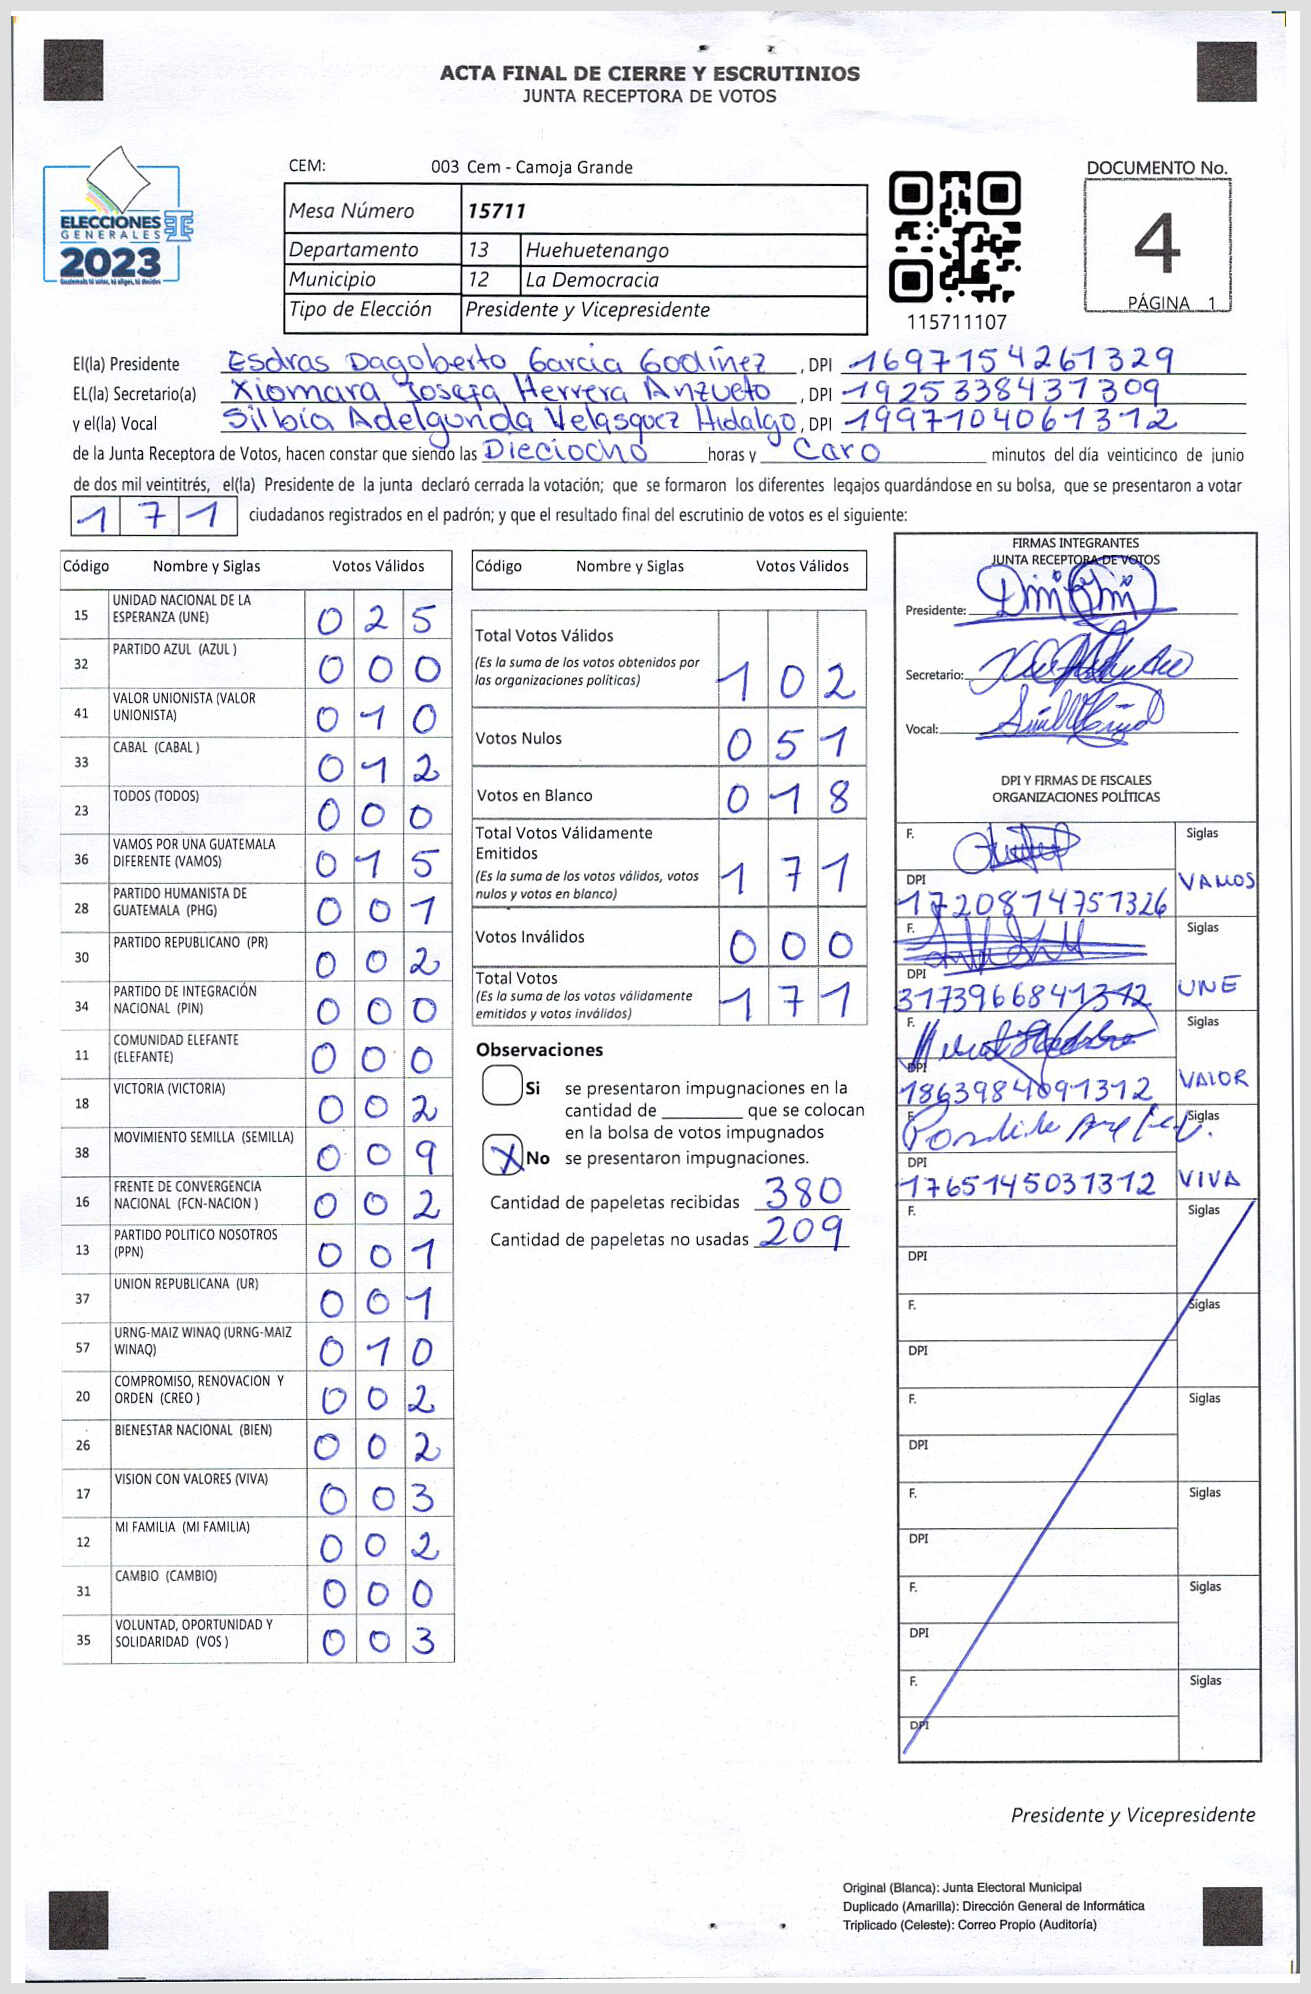 ACTA FINAL DE CIERRE Y ESCRUTINIOS
JUNTA RECEPTORA DE VOTOS
ELECCIONES
GENERALES
2023
CEM: 003 Cem - Camoja Grande
Mesa Número 15711
Departamento 13 Huehuetenango
Municipio 12 La Democracia
Tipo de Elección Presidente y Vicepresidente
115711107
DOCUMENTO No.
4
PÁGINA 1
El(la) Presidente Esdras Dagoberto Garcia Godínez , DPI 1697154261329
EL(la) Secretario(a) Xiomara Josefa Herrera Anzueto , DPI 1925338431309
y el(la) Vocal Silbia Adelgunda Velasquez Hidalgo, DPI 1997104061312
de la Junta Receptora de Votos, hacen constar que siendo las Dieciocho horas y Cero minutos del día veinticinco de junio
de dos mil veintitrés, el(la) Presidente de la junta declaró cerrada la votación; que se formaron los diferentes legajos guardándose en su bolsa, que se presentaron a votar
171 ciudadanos registrados en el padrón; y que el resultado final del escrutinio de votos es el siguiente:
Código Nombre y Siglas Votos Válidos
15 UNIDAD NACIONAL DE LA ESPERANZA (UNE) 025
32 PARTIDO AZUL (AZUL ) 000
41 VALOR UNIONISTA (VALOR UNIONISTA) 010
33 CABAL (CABAL ) 012
23 TODOS (TODOS) 000
36 VAMOS POR UNA GUATEMALA DIFERENTE (VAMOS) 015
28 PARTIDO HUMANISTA DE GUATEMALA (PHG) 001
30 PARTIDO REPUBLICANO (PR) 002
34 PARTIDO DE INTEGRACIÓN NACIONAL (PIN) 000
11 COMUNIDAD ELEFANTE (ELEFANTE) 000
18 VICTORIA (VICTORIA) 002
38 MOVIMIENTO SEMILLA (SEMILLA) 009
16 FRENTE DE CONVERGENCIA NACIONAL (FCN-NACION ) 002
13 PARTIDO POLITICO NOSOTROS (PPN) 001
37 UNION REPUBLICANA (UR) 001
57 URNG-MAIZ WINAQ (URNG-MAIZ WINAQ) 010
20 COMPROMISO, RENOVACION Y ORDEN (CREO ) 002
26 BIENESTAR NACIONAL (BIEN) 002
17 VISION CON VALORES (VIVA) 003
12 MI FAMILIA (MI FAMILIA) 002
31 CAMBIO (CAMBIO) 000
35 VOLUNTAD, OPORTUNIDAD Y SOLIDARIDAD (VOS ) 003
Código Nombre y Siglas Votos Válidos
Total Votos Válidos
(Es la suma de los votos obtenidos por
las organizaciones políticas) 102
Votos Nulos 051
Votos en Blanco 018
Total Votos Válidamente
Emitidos
(Es la suma de los votos válidos, votos
nulos y votos en blanco) 171
Votos Inválidos 000
Total Votos
(Es la suma de los votos válidamente
emitidos y votos inválidos) 171
Observaciones
Si se presentaron impugnaciones en la
cantidad de ________ que se colocan
en la bolsa de votos impugnados
X No se presentaron impugnaciones.
Cantidad de papeletas recibidas 380
Cantidad de papeletas no usadas 209
FIRMAS INTEGRANTES
JUNTA RECEPTORA DE VOTOS
Presidente:
Secretario:
Vocal:
DPI Y FIRMAS DE FISCALES
ORGANIZACIONES POLÍTICAS
F. Siglas
DPI VAMOS
1720814751326
F. Siglas
DPI UNE
3173966841312
F. Siglas
DPI VALOR
1863984091312
F. Siglas
DPI
1765145031312 VIVA
F. Siglas
DPI
F. Siglas
DPI
F. Siglas
DPI
F. Siglas
DPI
F. Siglas
DPI
F. Siglas
DPI
Presidente y Vicepresidente
Original (Blanca): Junta Electoral Municipal
Duplicado (Amarilla): Dirección General de Informática
Triplicado (Celeste): Correo Propio (Auditoría)